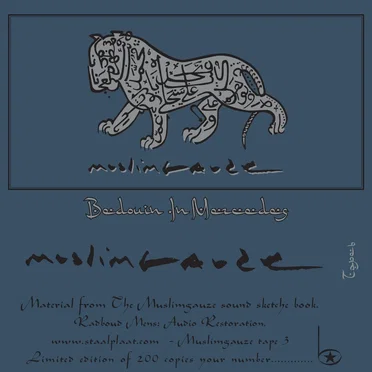 muslimgauze
Bedouin In Mercedes
muslimgauze
Material from The Muslimgauze sound sketche book.
Radboud Mens; Audio Restoration.
www.staalplaat.com - Muslimgauze tape 3
Limited edition of 200 copies your number.............